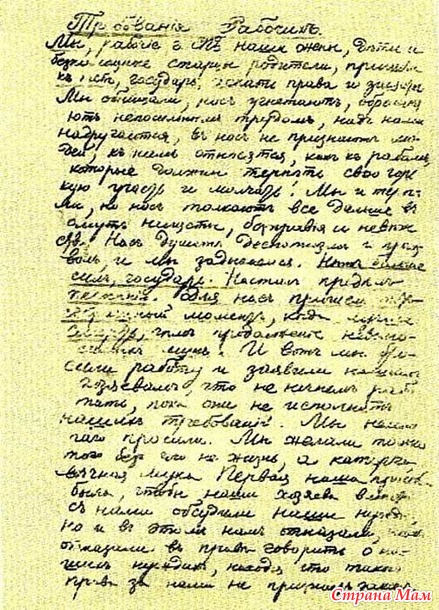 Требованія Рабочихъ.
Мы, рабочіе г. наши жены, дѣти и
старцы родители, пришли
къ государь, искати правды и защиты
Мы обнищали, насъ угнетаютъ, обременя
ютъ непосильнымъ трудомъ, надъ нами
надругаются, въ насъ не признаютъ лю
дей, къ намъ относятся, какъ къ рабамъ,
которые должны терпѣть свою горь
кую участь и молчать! Мы и терпѣ
ли, но насъ толкаютъ все дальше въ
омутъ нищеты, безправія и невѣже
ства. Насъ душитъ деспотизмъ и произ
волъ, и мы задыхаемся. Нѣтъ больше
силъ, государь. Насталъ предѣлъ
терпѣнію. Для насъ пришелъ тотъ
страшный моментъ, когда лучше
смерть, чѣмъ продолженіе невыно
симыхъ мукъ. И вотъ мы бро
сили работу и заявили нашимъ
хозяевамъ, что не начнемъ рабо
тать, пока они не исполнятъ
нашихъ требованій. Мы не мно
гаго просили. Мы желали только
того безъ чего не жизнь, а каторга,
вѣчная мука. Первая наша просьба
была, чтобы наши хозяева вмѣстѣ
съ нами обсудили наши нужды,
но и въ этомъ намъ отказали, намъ
отказали въ правѣ говорить о на
шихъ нуждахъ, находя, что такого
права за нами не признаетъ законъ
Страна Мам